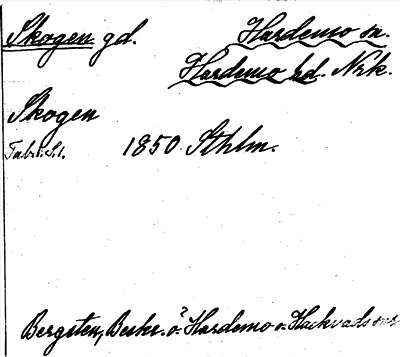 Skogen gd. Hardemo sn.
Hardemo hd. Nrk.
Skogen
1850 Sthlm.
Bergsten, Beskr. ö. Hardemo o. Hackvads snr